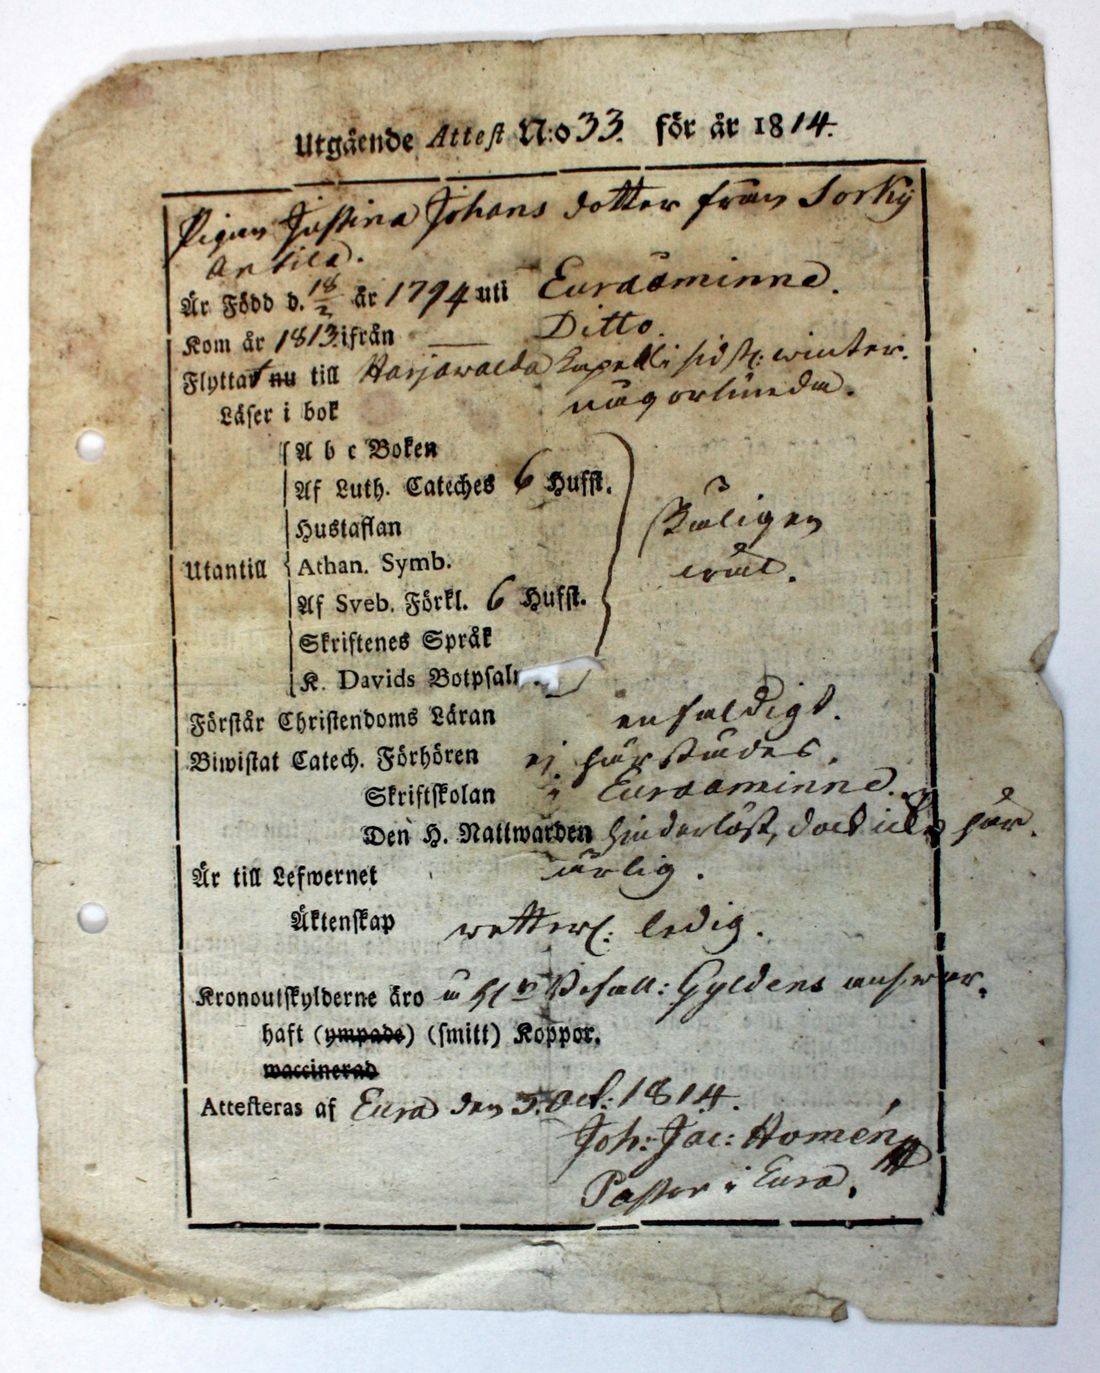 Utgående Attest N:o 33. för år 1814.
Pigan Justina Johans dotter från Sorky
Antila.
Är Född d. 18/2 år 1794 uti Euraåminne.
Kom år 1813 ifrån — Ditto.
Flyttat nu till Harjawalda Capell i sidstl: winter.
Läser i bok någorlunda.
A b c Boken
Af Luth. Cateches 6 Hufst.
Hustaflan
Utantill Athan. Symb.
Af Sveb. Förkl. 6 Hufst.
Skriftenes Språk
K. Davids Botpsalm
skäligen
Förstår Christendoms Läran enfaldigt.
Biwistat Catech. Förhören ej härstädes.
Skriftskolan i Euraaminne.
Den H. Nattwarden hinderlöst, dock icke här.
Är till Lefwernet ärlig.
Äktenskap wetterl: ledig.
Kronoutskylderne äro å Befall: Gyldens answar.
haft (ympade) (smitt) Koppor.
waccinerad
Attesteras af Eura den 5. Oct: 1814.
Joh: Jac: Homén
Pastor i Eura.